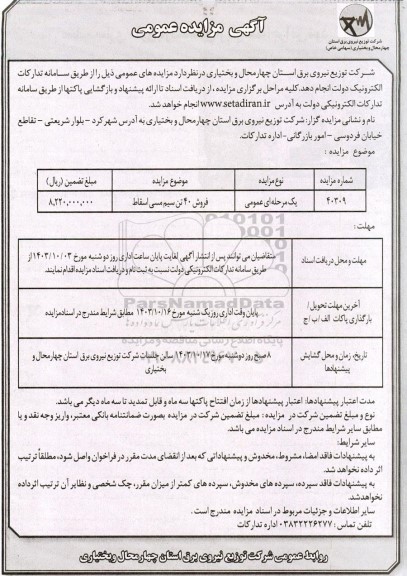 آگهی مزایده عمومی
شرکت توزیع نیروی برق استان
چهارمحال وبختیاری (سهامی خاص)
شرکت توزیع نیروی برق استان چهارمحال و بختیاری در نظر دارد مزایده های عمومی ذیل را از طریق سامانه تدارکات
الکترونیک دولت انجام دهد. کلیه مراحل برگزاری مزایده ، از دریافت اسناد تا ارائه پیشنهاد و بازگشایی پاکتها از طریق سامانه
تدارکات الکترونیکی دولت به آدرس www.setadiran.ir انجام خواهد شد.
نام و نشانی مزایده گزار: شرکت توزیع نیروی برق استان چهارمحال و بختیاری به آدرس شهرکرد - بلوار شریعتی - تقاطع
خیابان فردوسی - امور بازرگانی- اداره تدارکات.
موضوع مزایده :
شماره مزایده | نوع مزایده | موضوع مزایده | مبلغ تضمین (ریال)
۴۰۳۰۹ | یک مرحله ای عمومی | فروش ۴۰ تن سیم مسی اسقاط | ۸,۲۲۰,۰۰۰,۰۰۰
مهلت :
مهلت و محل دریافت اسناد | متقاضیان می توانند پس از انتشار آگهی لغایت پایان ساعت اداری روز دوشنبه مورخ ۱۴۰۳/۱۰/۰۳ از
طریق سامانه تدارکات الکترونیکی دولت نسبت به ثبت نام و دریافت اسناد مزایده اقدام نمایند.
آخرین مهلت تحویل /
بارگذاری پاکات الف /ب /ج | پایان وقت اداری روز یک شنبه مورخ ۱۴۰۳/۱۰/۱۶ مطابق شرایط مندرج در اسناد مزایده
تاریخ، زمان و محل گشایش
پیشنهادها | ۸ صبح روز دوشنبه مورخ ۱۴۰۳/۱۰/۱۷ سالن جلسات شرکت توزیع نیروی برق استان چهارمحال و
بختیاری
مدت اعتبار پیشنهادها: اعتبار پیشنهادها از زمان افتتاح پاکتها سه ماه و قابل تمدید تا سه ماه دیگر می باشد.
نوع و مبلغ تضمین شرکت در مزایده : مبلغ تضمین شرکت در مزایده بصورت ضمانتنامه بانکی معتبر، واریز وجه نقد و یا
مطابق سایر شرایط مندرج در اسناد مزایده می باشد.
سایر شرایط:
به پیشنهادات فاقد امضا، مشروط، مخدوش و پیشنهاداتی که بعد از انقضای مدت مقرر در فراخوان واصل شود، مطلقاً ترتیب
اثر داده نخواهد شد.
به پیشنهادات فاقد سپرده، سپرده های مخدوش، سپرده های کمتر از میزان مقرر، چک شخصی و نظایر آن ترتیب اثر داده
نخواهد شد.
سایر اطلاعات و جزئیات مربوط در اسناد مزایده مندرج است.
تلفن تماس : ۰۳۸۳۲۲۲۶۲۷۷ اداره تدارکات
روابط عمومی شرکت توزیع نیروی برق استان چهارمحال وبختیاری
ParsNamadData